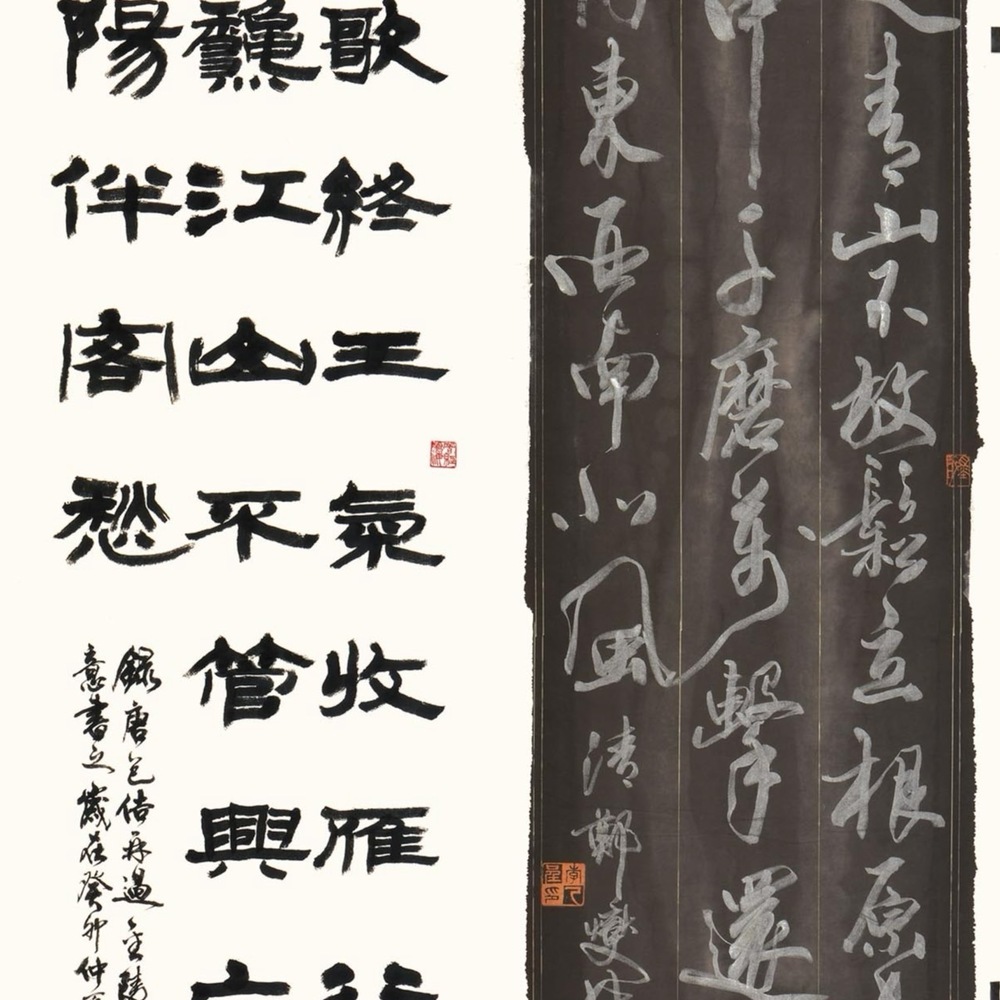 歌終王氣收雁行
龝江山不管興亡
陽伴客愁
錄唐包佶再過金陵
意書之歲在癸卯仲
定青山不放鬆立根原
中千磨萬擊還
東西南北風清鄭燮